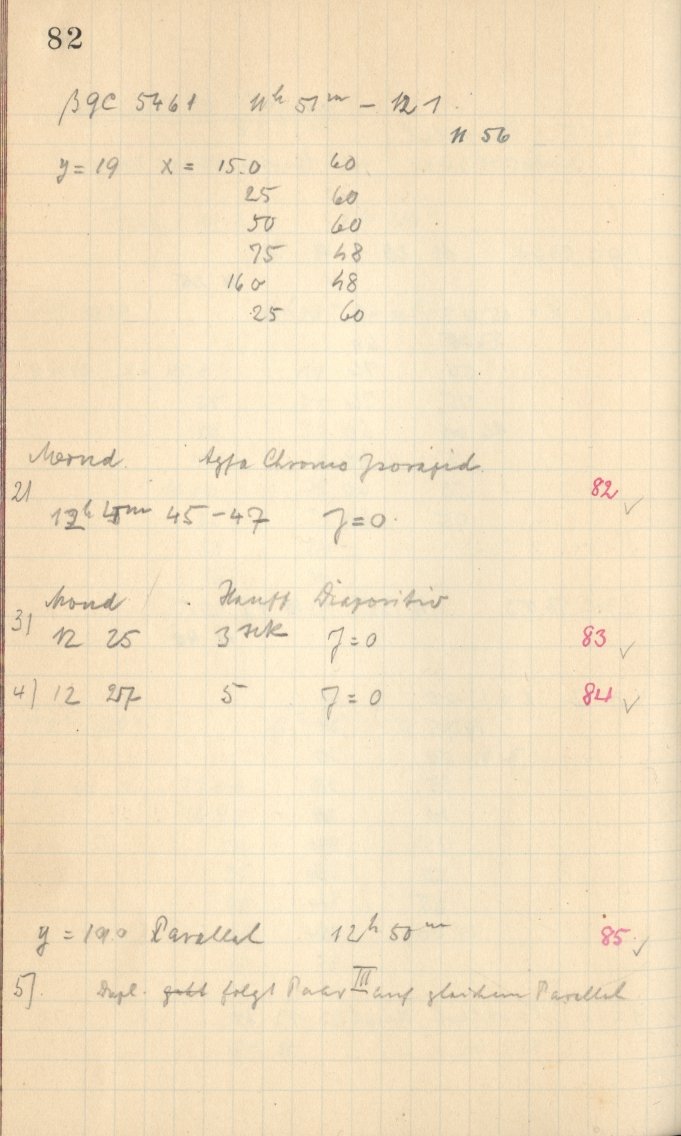 82
βGC 5461 11h 51m – 12 1
11 56
y = 19 x = 15.0 60
25 60
50 60
75 48
160 48
25 60
Mond Agfa Chromo Isorapid 82 ✓
2)
12h 45 – 47 J = 0
Mond Hauff Diapositiv
3) 12 25 3 sek J = 0 83 ✓
4) 12 27 5 J = 0 84 ✓
y = 190 Parallel 12h 50m 85 ✓
5) Dupl. geht folgt Paar III auf gleichem Parallel